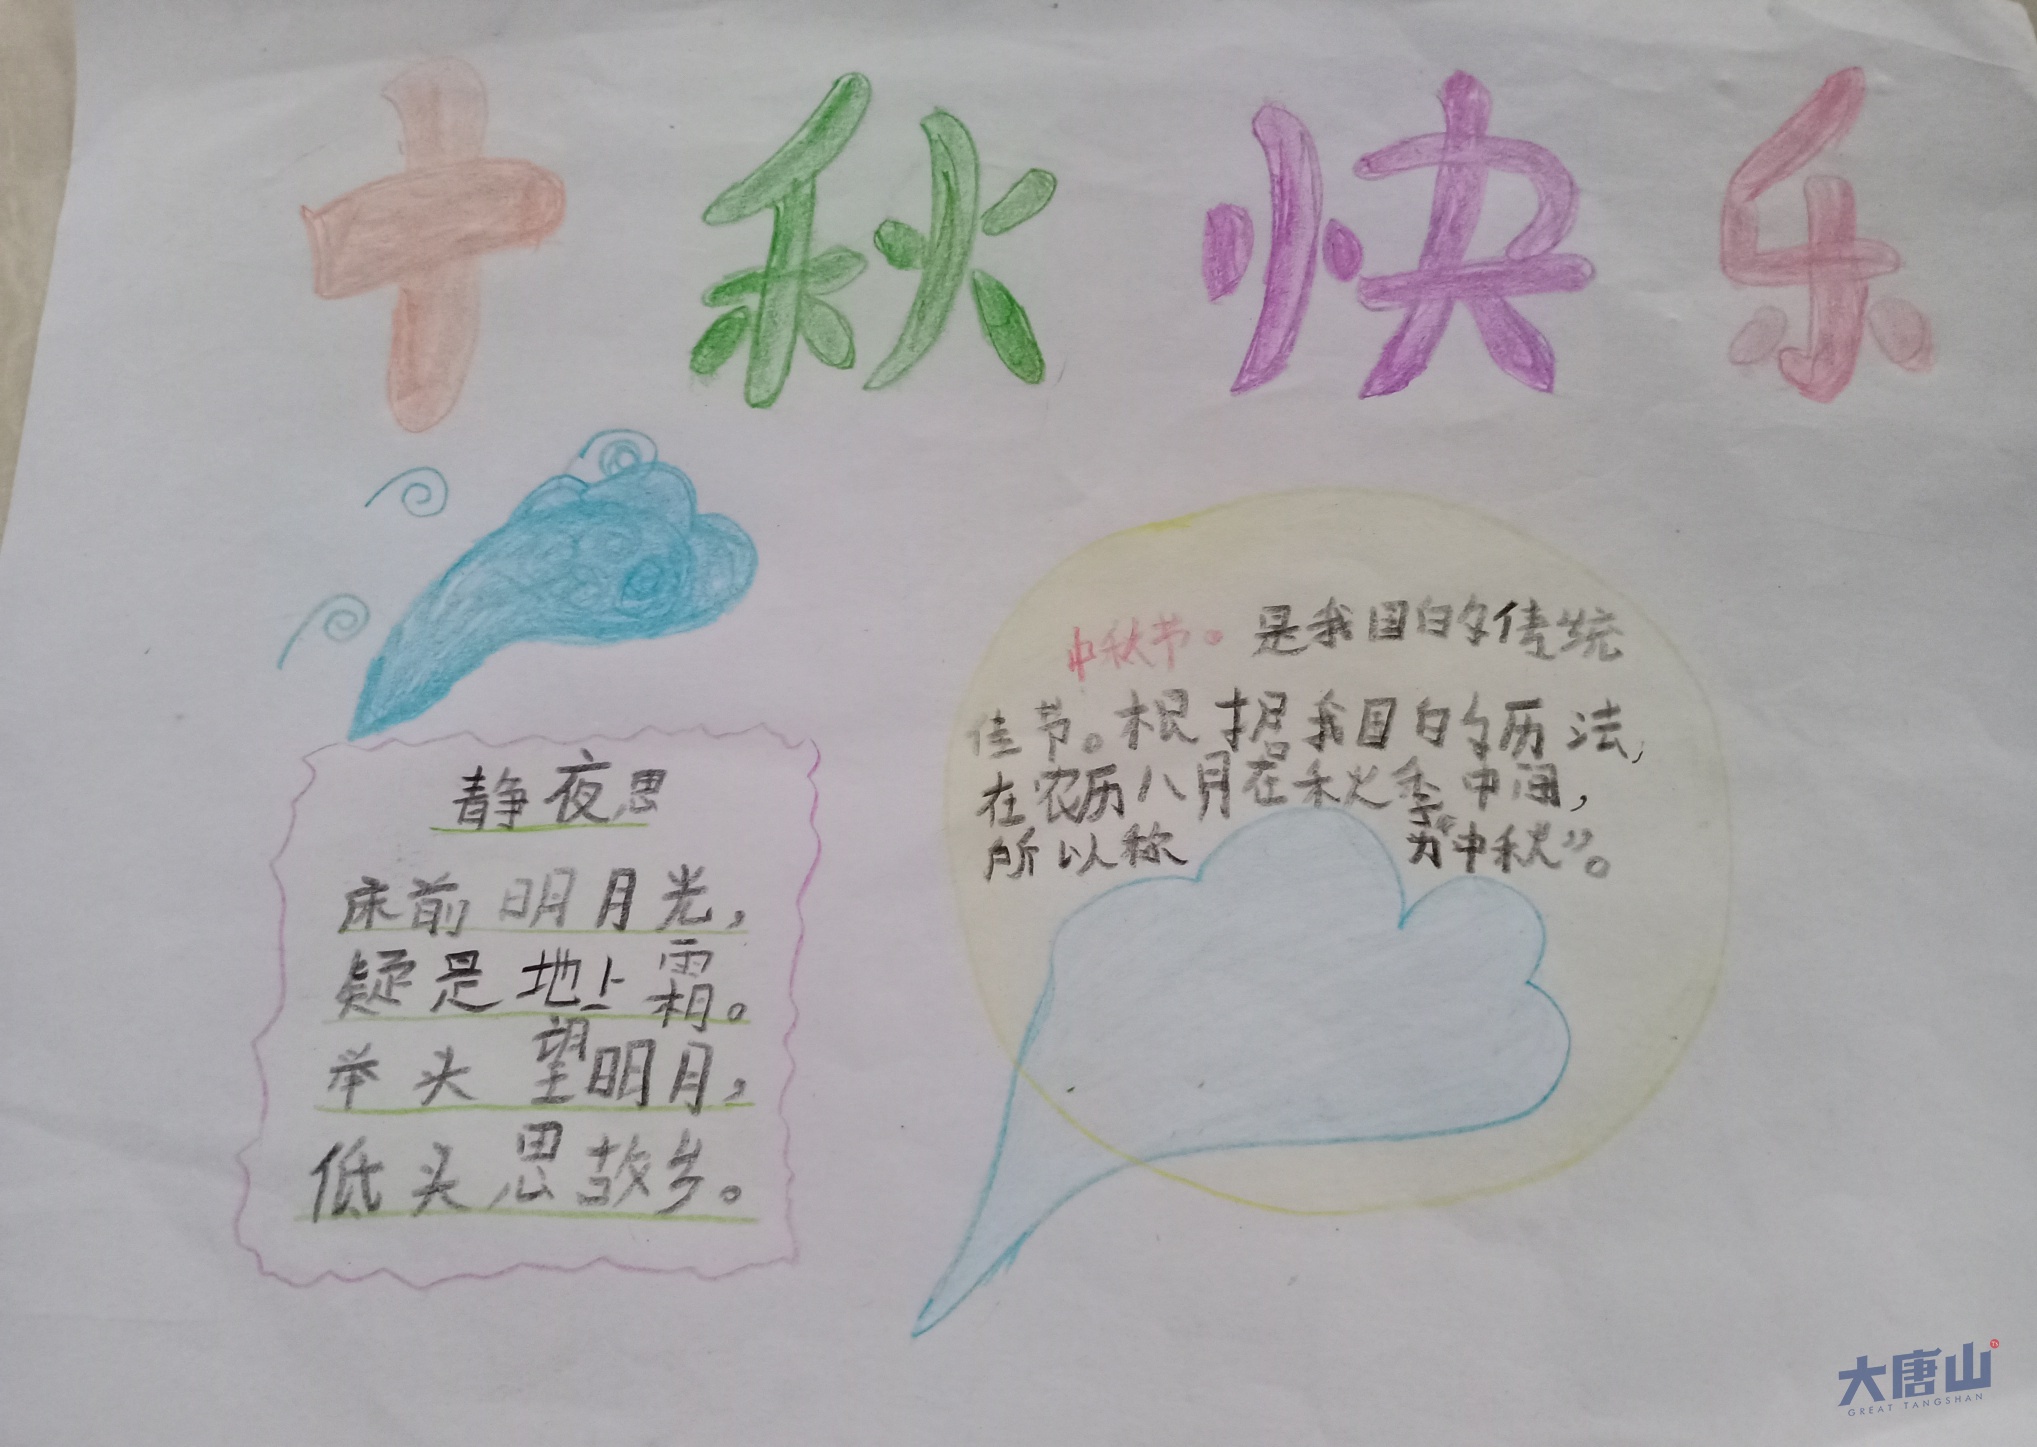 十秋快乐
静夜思
床前明月光，
疑是地上霜。
举头望明月，
低头思故乡。
中秋节。是我国的传统
佳节。根据我国的历法，
在农历八月在秋季中间，
所以称为“中秋”。
大唐山
GREAT TANGSHAN